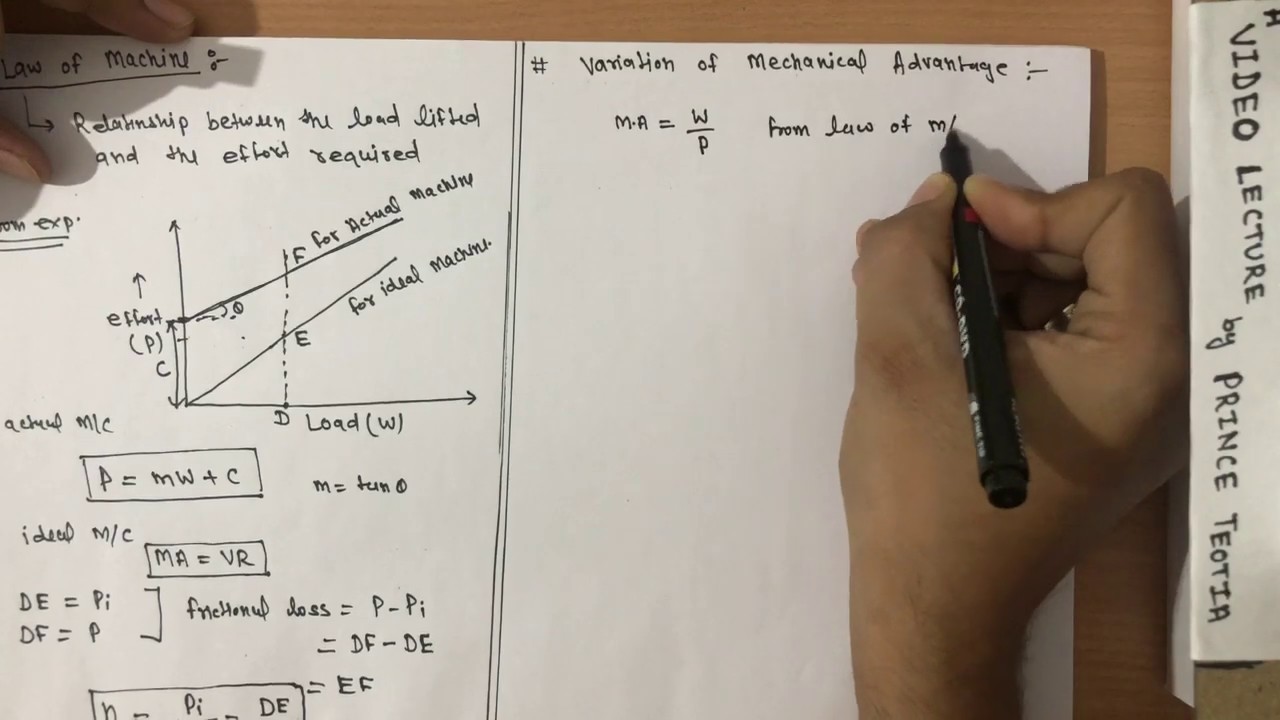 Law of Machine :-
Relatinship between the load lifted
and the effort required
om exp.
for Actual machine
F
θ
effort
(P)
C
for ideal machine.
E
D
Load (W)
actual M/C
P = mW + C
m = tan θ
ideal M/C
MA = VR
DE = Pi
DF = P
frictional loss = P - Pi
= DF - DE
= EF
η = Pi = DE
# Variation of Mechanical Advantage :-
M.A = W/P from law of m/
VIDEO LECTURE by PRINCE TEOTIA